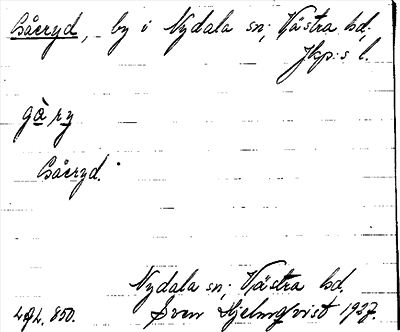 Gåeryd, by i Nydala sn; Västra hd;
Jkp:s l.
gå̀ ry
Gåeryd.
Nydala sn; Västra hd.
Sven Hjelmqvist 1927.